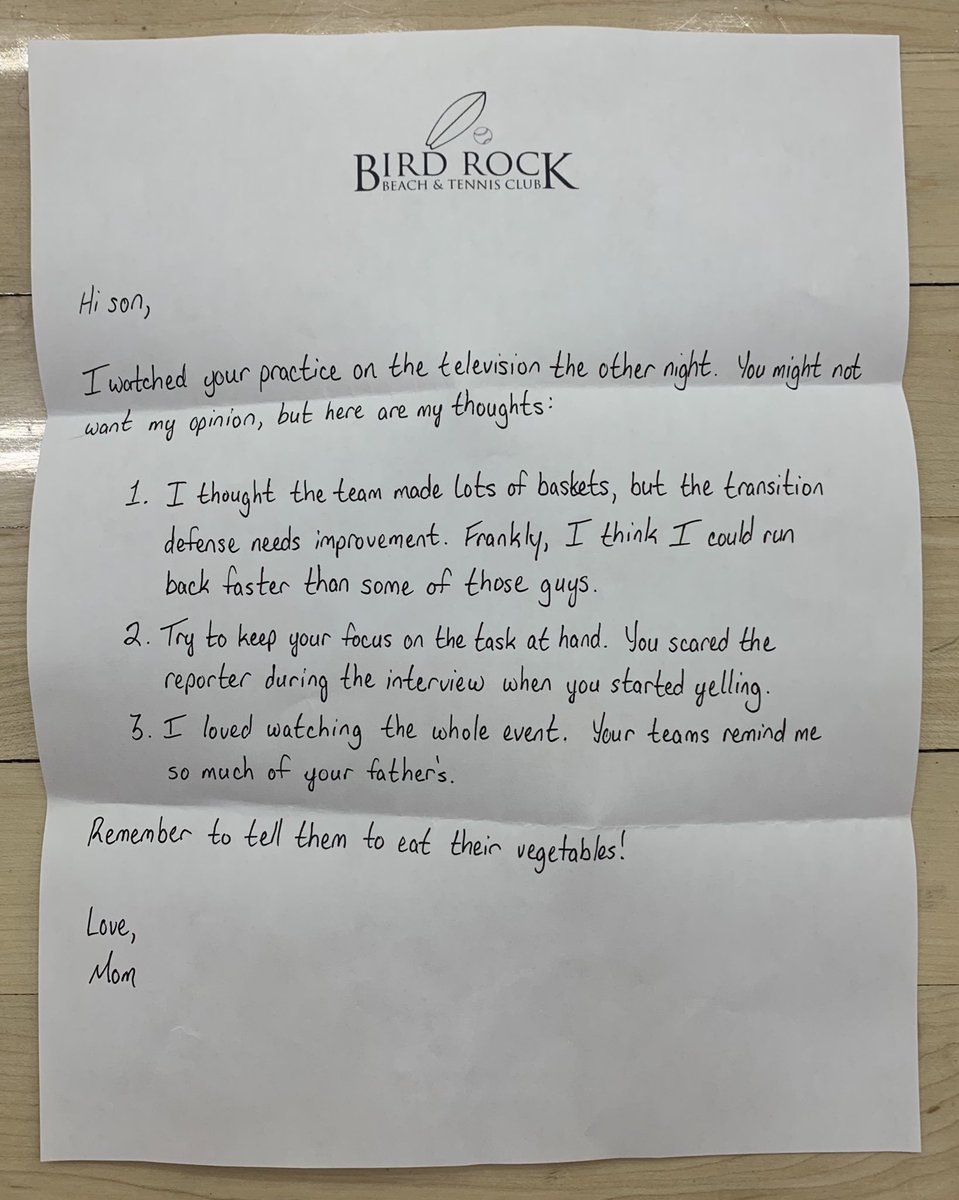 BIRD ROCK
BEACH & TENNIS CLUB
Hi son,
I watched your practice on the television the other night. You might not
want my opinion, but here are my thoughts:
1. I thought the team made lots of baskets, but the transition
defense needs improvement. Frankly, I think I could run
back faster than some of those guys.
2. Try to keep your focus on the task at hand. You scared the
reporter during the interview when you started yelling.
3. I loved watching the whole event. Your teams remind me
so much of your father's.
Remember to tell them to eat their vegetables!
Love,
Mom